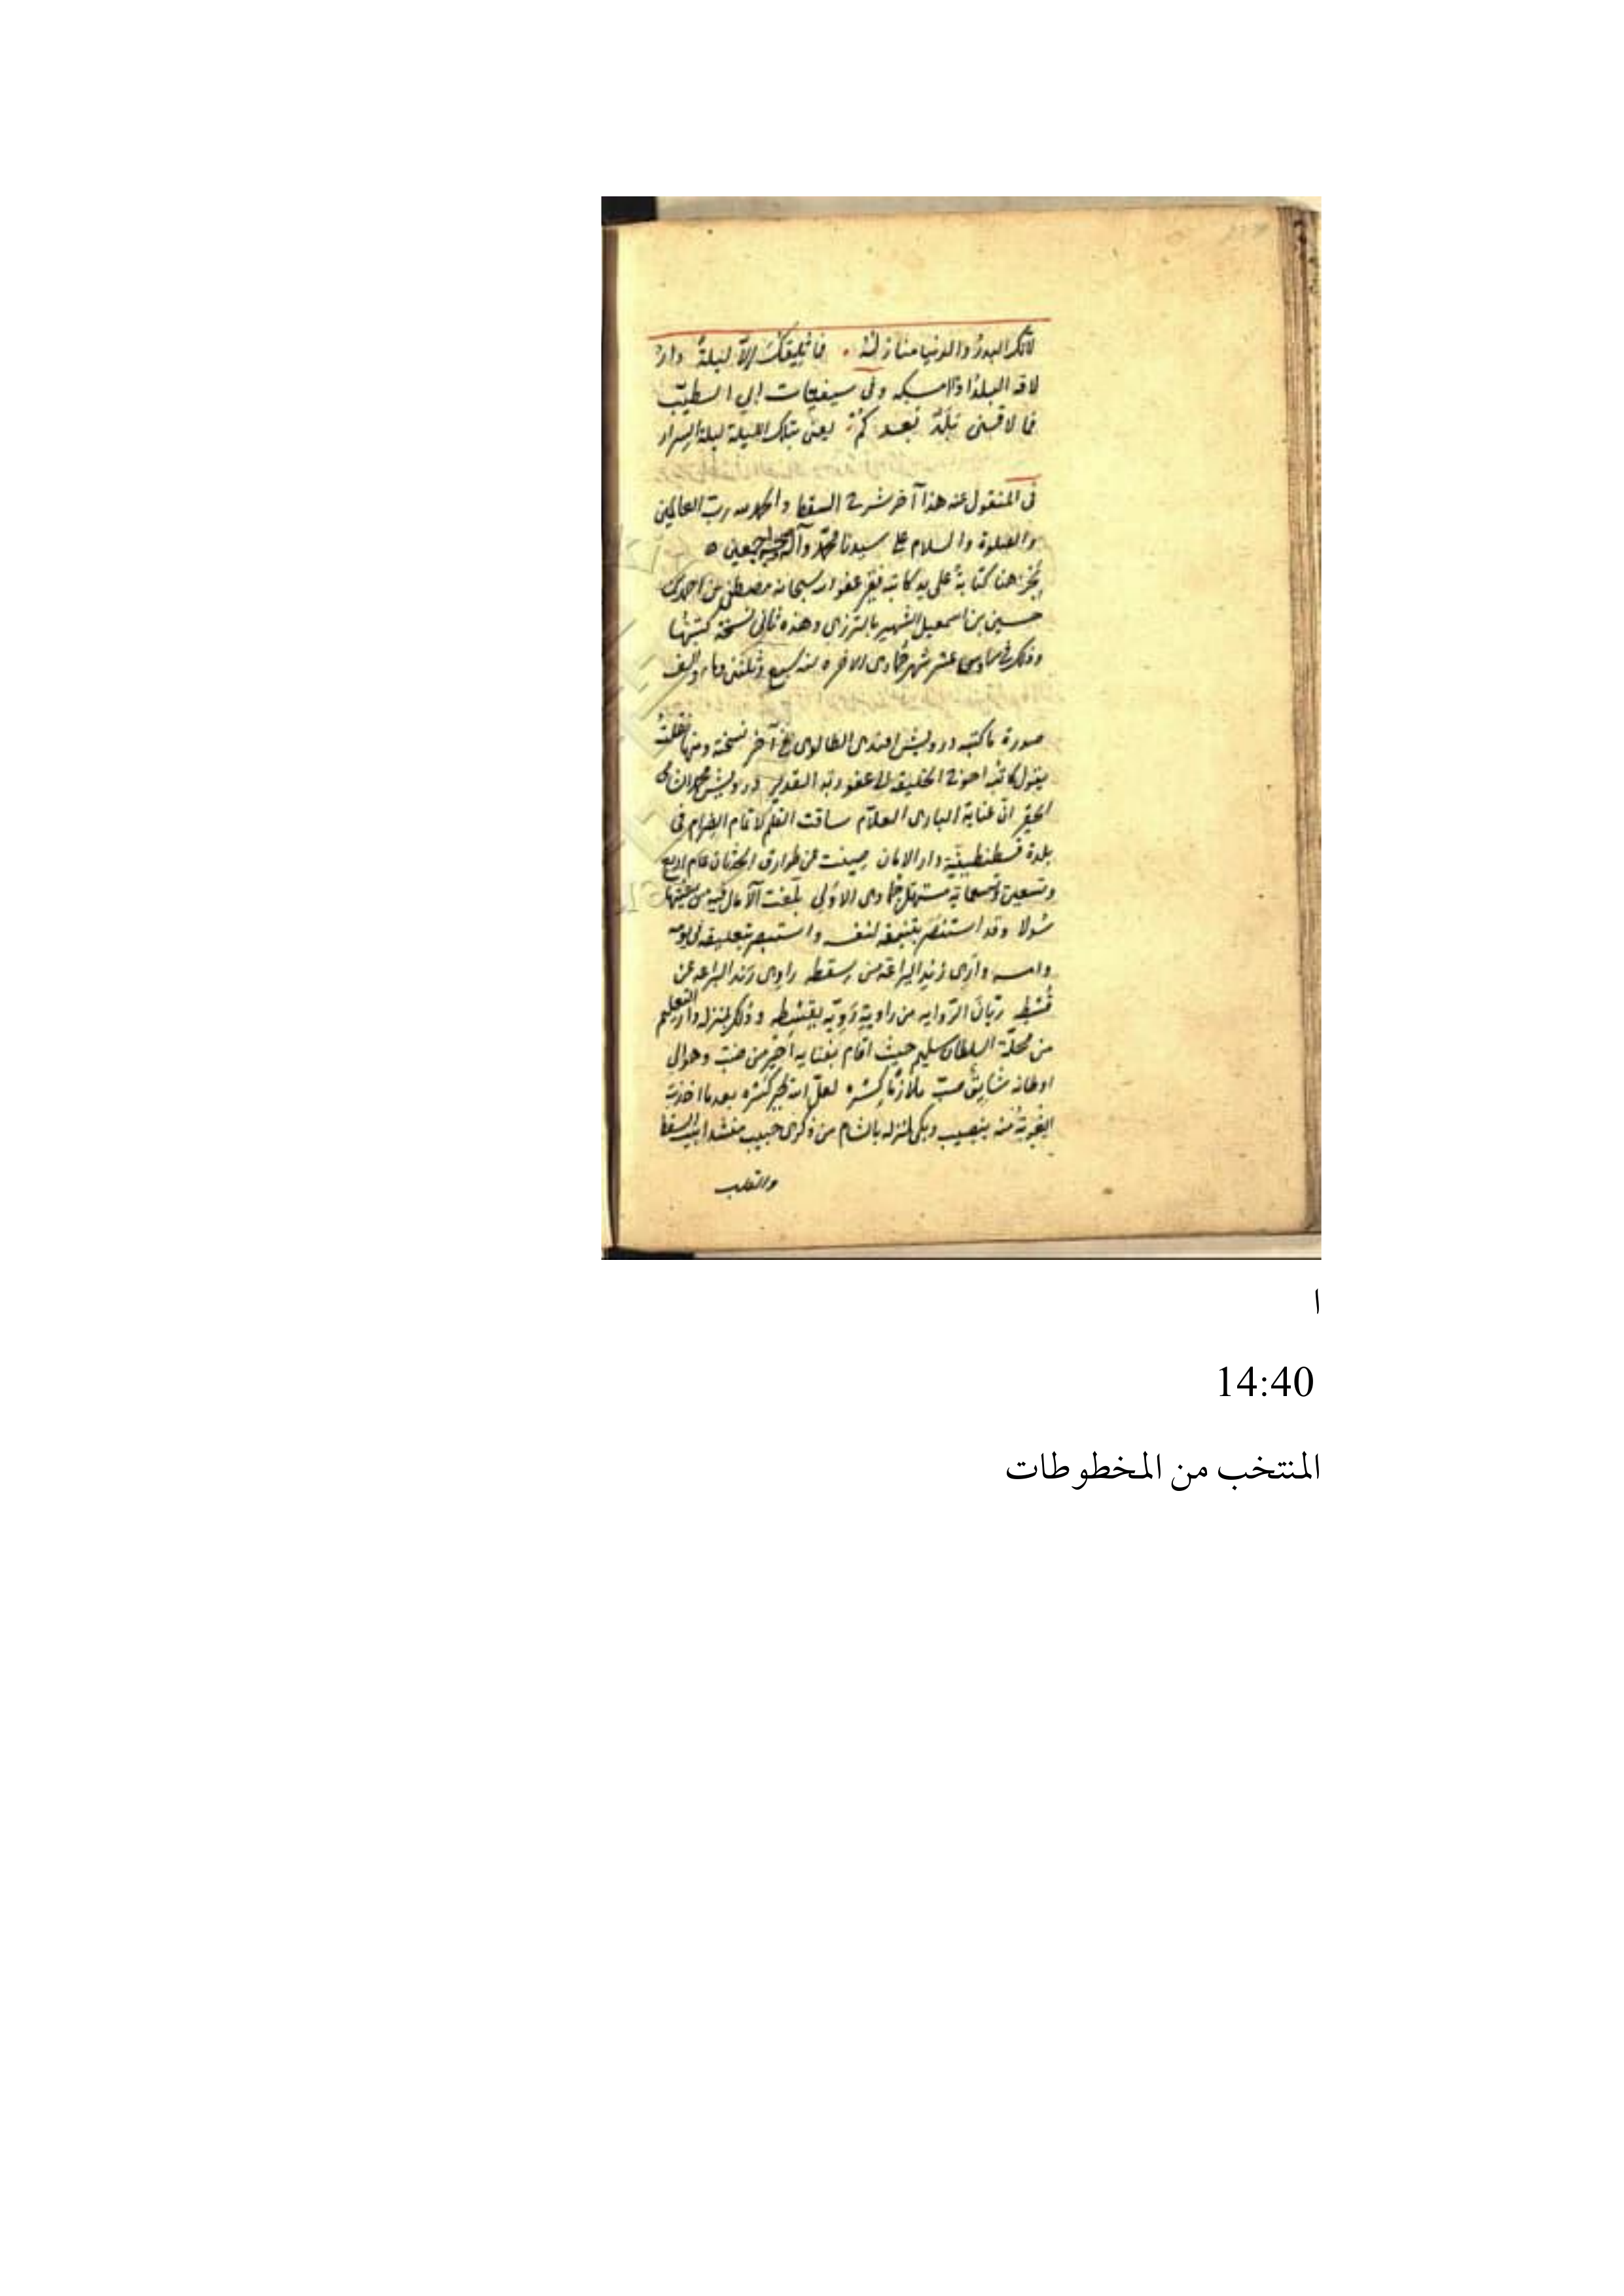 لانك البدر والدنيا منازله فما تليقك الا ليلة دار
لاقه البلد اذا امسكه وفي سيفيات ابي الطيب
فما لاقني بلد بعدكم يعني بتلك الليلة ليلة السرار
في المنقول عنه هذا آخر شرح السقط والحمد لله رب العالمين
والصلوة والسلام على سيدنا محمد وآله وصحبه اجمعين
نجز هنا كتابة على يد كاتبه فقير عفو الله سبحانه مصطفى بن احمد بن
حسين بن اسمعيل الشهير بالترزي وهذه ثاني نسخة كتبتها
وذلك في سادس عشر شهر جمادى الاخره سنه سبع وثلثين وماء والف
صورة ما كتبه درويش افندي الطالوي في آخر نسخة ومنها نقلت
يقول كاتبه احوج الخليقة الى عفو ربه القدير درويش محمد
الحقير ان عناية الباري العلام ساقت القلم لاتمام في
بلدة قسطنطينية دار الامان صينت عن طوارق الحدثان عام اربع
وتسعين وتسعماية مستهل جمادى الاولى بلغت الآمال فيه من
سولا وقد استنصر بتنميقه لنفسه واستبصر بتعليقه في يومه
وامسه واري زند اليراعه من سقطه راوي زند البراعه عن
ربان الروايه من راوية وذلك بمنزله دار التعليم
من محلة السلطان سليم حيث اقام بفنايه من ضب وهو الى
اوطانه شايق صب ملازما كسره لعل الله يجبر كسره بعد ما اخذت
الغربة منه بنصيب وبكى لمنزله بالشام من ذكرى حبيب منشدا بيت السقط
والقلب
ا
14:40
المنتخب من المخطوطات